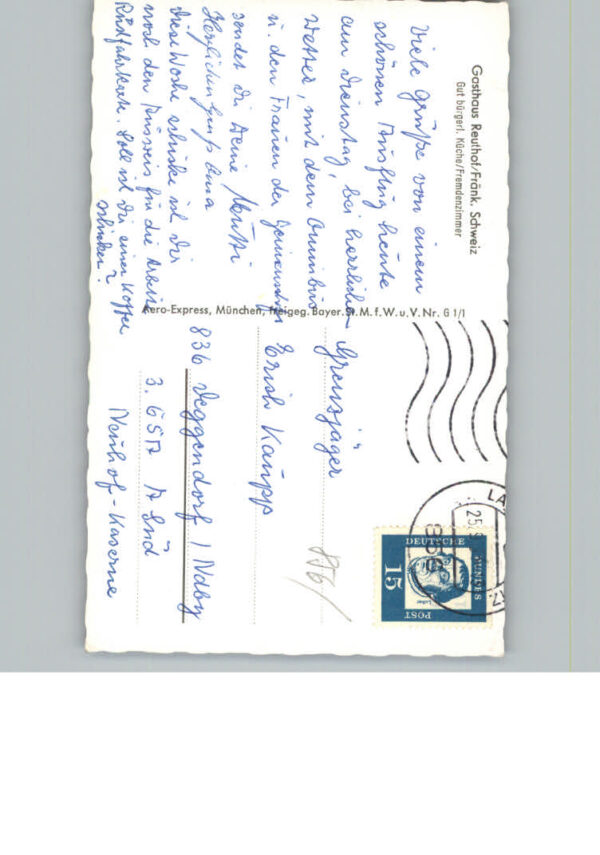 Gasthaus Reuthof/Fränk. Schweiz
Gut bürgerl. Küche/Fremdenzimmer
Viele Grüße von einem
schönen Ausflug heute
am Dienstag, bei herrlichem
Wetter, mit dem Omnibus
u. den Frauen der
sendet Dir Deine Mutti
Herzlichen Gruß Anna
Diese Woche schicke ich Dir
noch den Ausweis für die Arbeiter
Rückfahrkarte. Soll ich Dir einen Koffer
schicken?
Aero-Express, München, freigeg. Bayer.St.M.f.W.u.V.Nr. G 1/1
Grenzjäger
Erich Kaupp
836 Deggendorf / Ndby
3. GSA
Kaserne
856/
DEUTSCHE
BUNDES
POST
15
Luther
LA
25